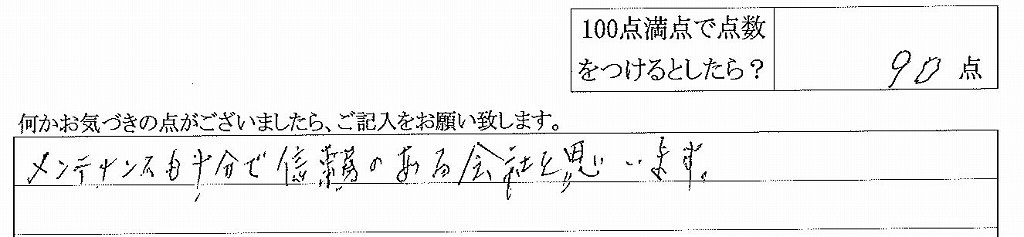 100点満点で点数
をつけるとしたら？
90 点
何かお気づきの点がございましたら、ご記入をお願い致します。
メンテナンスも十分で信頼のある会社と思います。